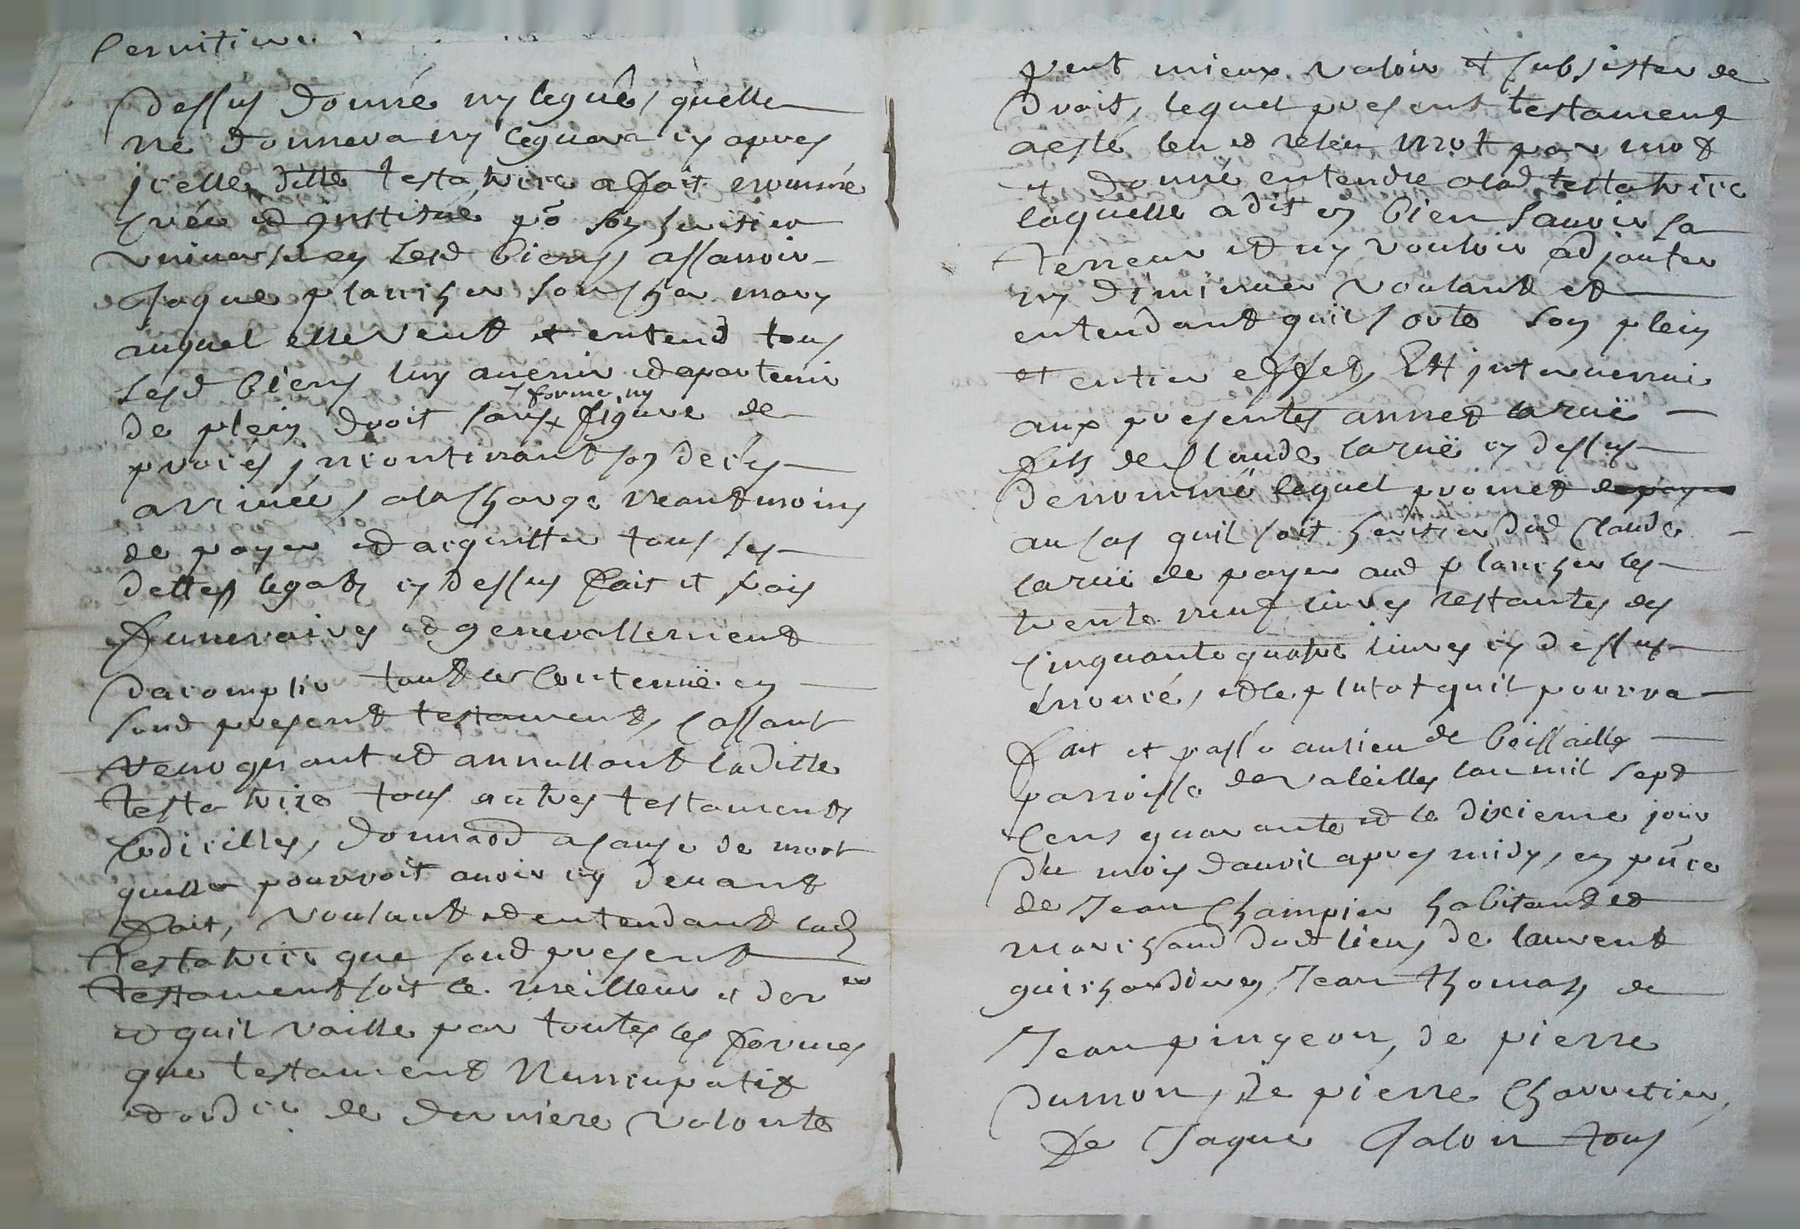 dessus donné ny legué, quelle
ne donnera ny leguera cy apres
jcelle ditte testatrice a fait nommé
créé et jnstitué po son heritier
universel en sesd biens, assavoir
Jaque plancher son cher mary
auquel elle veut et entend tous
sesd biens luy avenir et apartenir
de plein droit sans forme ny figure de
procés jncontinant son decés
arrivée, a la charge neantmoins
de payer et acquitter tous ses
dettes legatz cy dessus fait et frais
funeraires et generallement
dacomplir tout le contenüe en
sond present testament, cassant
revoquant et annullant laditte
testatrice tous autres testaments
codicilles, donnaon a cause de mort
quelle pourroit avoir cy devant
fait, voulant et entendant lad
testatrice que sond present
testament soit le meilleur et der er
et quil vaille par toutes les formes
que testament Nuncupatif
et ordce de derniere volonte
peut mieux valoir et subsister de
droit, lequel present testament
a esté leu et releu mot par mot
et donné entendre alad testatrice
laquelle a dit en bien sauoir la
teneur et ny vouloir adjouter
ny diminuer voulant et
entendant quil sorte son plein
et entier effet, Et jntervenuë
aux presentes annet laruë
fils de Claude laruë cy dessus
denommé lequel promet
au cas quil soit heritier dud Claude
laruë de payer aud plancher les
trente neuf livres restantes des
cinquante quatre livres cy dessus
énoncé, et le plutot quil pourra
fait et passé au lieu de boissaille
parroisse de valeille lan mil sept
cens quarante et le dixieme jour
du mois davril apres midy, en pnce
de Jean Champier habitant et
marchand dud lieu, de laurent
guichardiere, Jean thomas, de
Jean pingeon, de pierre
dumon, de pierre Charretier,
de Jaque Jaloin tous